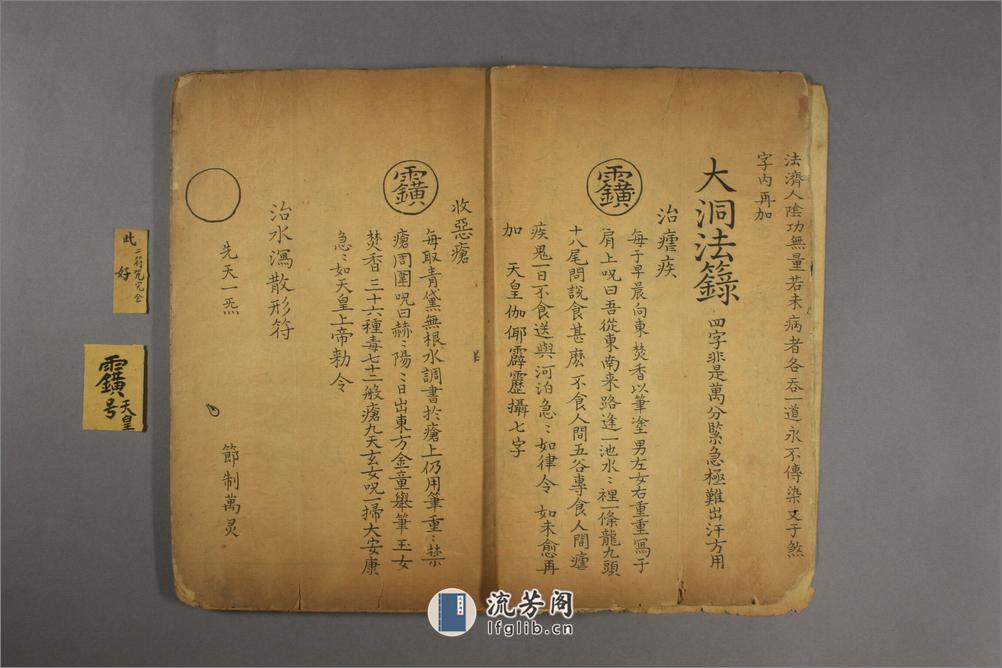 法濟人陰功無量若未病者各吞一道永不傳染又于煞
字內再加
大洞法籙 四字非是萬分緊急極難出汗方用
治瘧疾
每于早晨向東焚香以筆塗男左女右重重寫于
肩上呪曰吾從東南來路逢一池水〻裡一條龍九頭
十八尾問說食甚麽不食人間五谷專食人間瘧
疾鬼一日不食送與河泊急〻如律令 如未愈再
加 天皇伽倻霹靂攝七字
收惡瘡
每取青黛無根水調書於瘡上仍用筆重〻禁
瘡周圍呪曰赫〻陽〻日出東方金童舉筆玉女
焚香三十六種毒七十二般瘡九天玄女呪一掃大安康
急〻如天皇上帝勅令
治水瀉散形符
先天一炁 節制萬灵
此二符咒完全
好
天皇
号
流芳阁
lfglib.cn